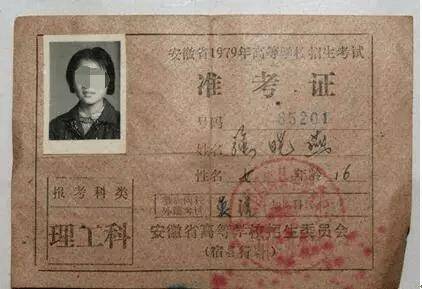 安徽省1979年高等学校招生考试
准考证
号码 65201
姓名 徐晓燕
性名 女 年龄 16
报考科类
理工科
英语
安徽省高等学校招生委员会